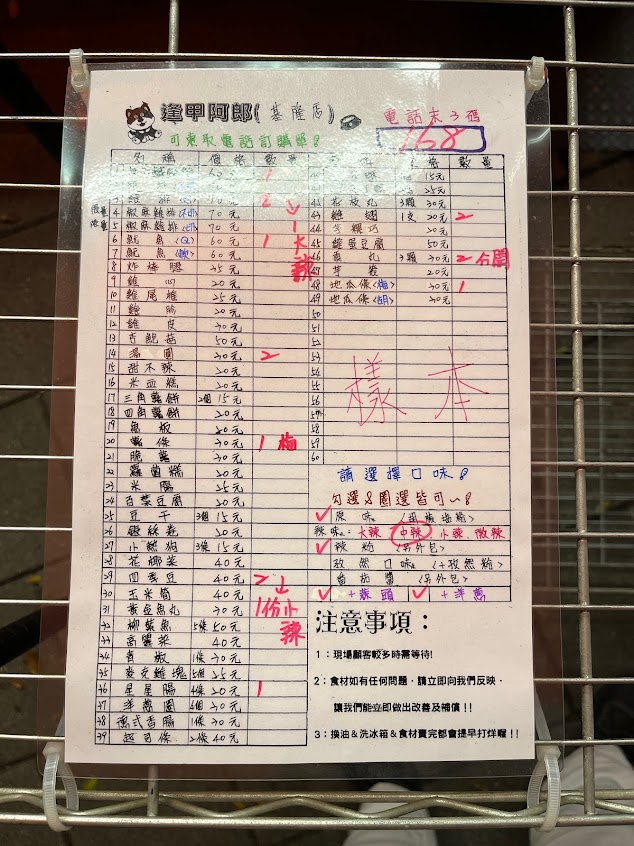 逢甲阿郎(基隆店)
電話末3碼
168
可索取電話訂購單
名稱 價格 數量
1
2
1大辣
限量 4 椒麻雞排 70元
限量 5 椒麻雞排 70元
6 魷魚<Q> 60元 1
7 魷魚<軟> 60元
8 炸棒腿 35元
9 雞心 20元
10 雞尾椎 25元
11 雞胗 20元
12 雞皮 30元
13 杏鮑菇 50元
14 湯圓 30元 2
15 甜不辣 20元
16 米血糕 20元
17 三角薯餅 2個15元
18 四角薯餅 20元
19 魚板 20元
20 薯條 30元 1 梅
21 脆薯 30元
22 蘿蔔糕 20元
23 米腸 25元
24 百葉豆腐 20元
25 豆干 3個15元
26 銀絲卷 20元
27 小熱狗 3條15元
28 花椰菜 40元
29 四季豆 40元 2
1份小辣
30 玉米筍 40元
31 黃金魚丸 30元
32 柳葉魚 5條50元
33 高麗菜 40元
34 香腸 1條30元
35 麥克雞塊 5個25元
36 星星腸 4條20元 1
37 洋蔥圈 6個30元
38 德式香腸 1條30元
39 起司條 2條40元
數量
15元
25元
花枝丸 3顆30元
43 雞翅 1支20元 2
44 20元
45 雞蛋豆腐 50元
46 貢丸 3顆30元 2 分開
47 芋粿 20元
48 地瓜條<梅> 30元 1
49 地瓜條<胡> 30元
50
51
52
53
54
55
56
57
58
59
60
樣本
請選擇口味
勾選&圈選皆可~
✓ 原味
辣味: 大辣 中辣 小辣 微辣
✓ 辣粉 <另外包>
孜然口味 <+孜然粉>
番茄醬 <另外包>
✓ +蒜頭 ✓ +洋蔥
注意事項:
1:現場顧客較多時需等待!
2:食材如有任何問題,請立即向我們反映,
讓我們能立即做出改善及補償!!
3:換油&洗冰箱&食材賣完都會提早打烊喔!!